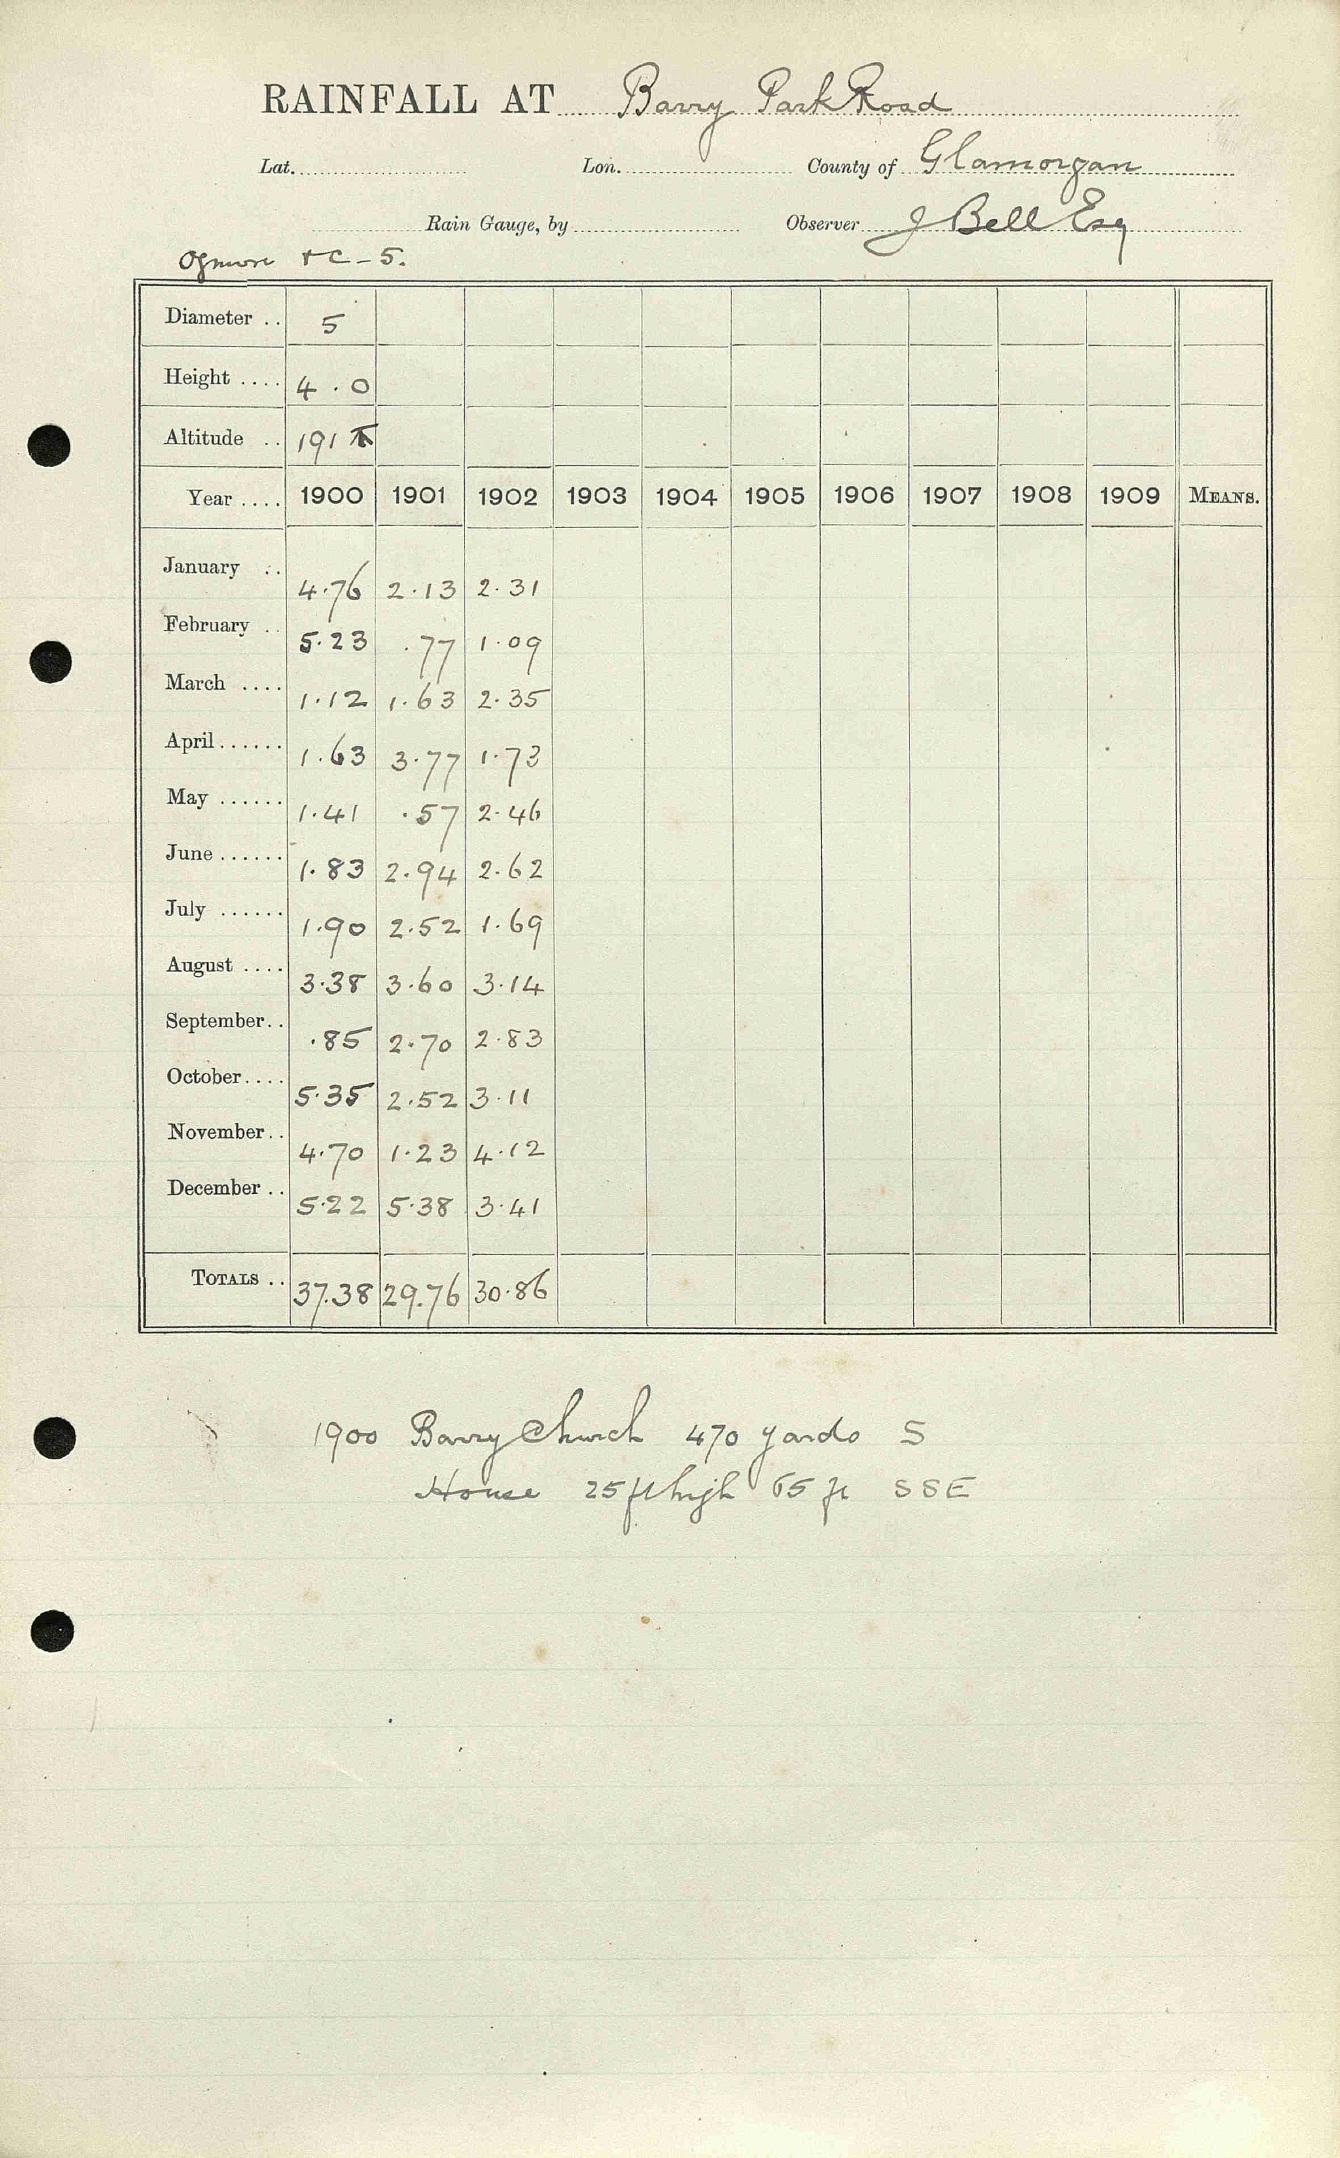 RAINFALL AT Barry Park Road
Lat. Lon. County of Glamorgan
Rain Gauge, by Observer J Bell Esq
Ogmore &c - 5.
Diameter .. 5
Height .... 4.0
Altitude .. 191
Year .... 1900 1901 1902 1903 1904 1905 1906 1907 1908 1909 MEANS.
January .. 4.76 2.13 2.31
February .. 5.23 .77 1.09
March .... 1.12 1.63 2.35
April...... 1.63 3.77 1.73
May ...... 1.41 .57 2.46
June ...... 1.83 2.94 2.62
July ...... 1.90 2.52 1.69
August .... 3.38 3.60 3.14
September.. .85 2.70 2.83
October.... 5.35 2.52 3.11
November.. 4.70 1.23 4.12
December .. 5.22 5.38 3.41
TOTALS .. 37.38 29.76 30.86
1900 Barry Church 470 yards S
House 25 ft high 65 ft SSE